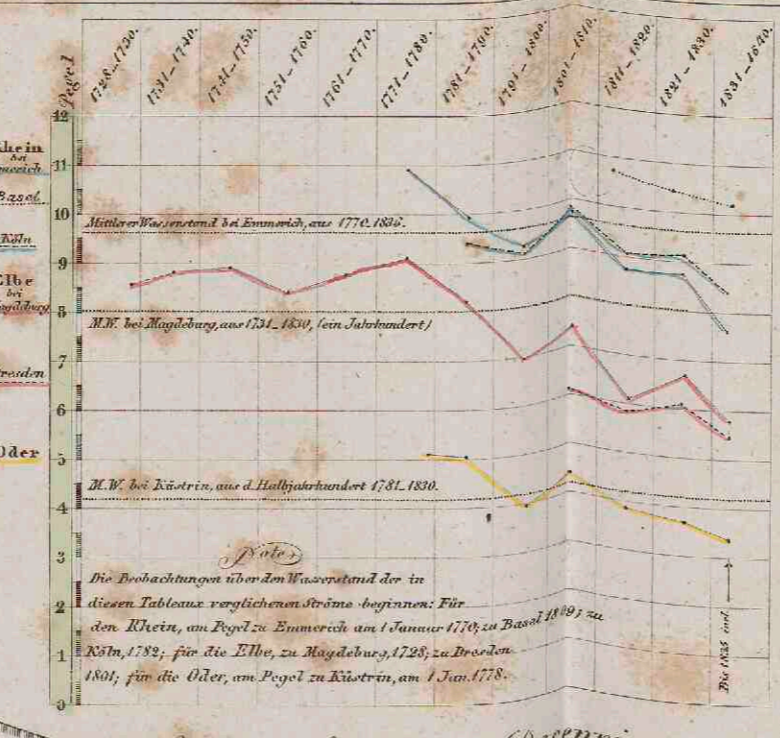 Pegel
1728_1730.
1731_1740.
1741_1750.
1751_1760.
1761_1770.
1771_1780.
1781_1790.
1791_1800.
1801_1810.
1811_1820.
1821_1830.
1831_1840.
12
11
10
9
8
7
6
5
4
3
2
1
0
Rhein
bei
Emmerich
Basel.
Köln
Elbe
bei
Magdeburg
Dresden
Oder
Mittlerer Wasserstand bei Emmerich, aus 1770_1836.
M.W. bei Magdeburg, aus 1731_1830, (ein Jahrhundert)
M.W. bei Küstrin, aus d. Halbjahrhundert 1781_1830.
Note
Die Beobachtungen über den Wasserstand der in
diesen Tableaux verglichenen Ströme beginnen: Für
den Rhein, am Pegel zu Emmerich am 1 Januar 1770; zu Basel 1809; zu
Köln, 1782; für die Elbe, zu Magdeburg, 1728; zu Dresden
1801; für die Oder, am Pegel zu Küstrin, am 1 Jan. 1778.
Bis 1835 incl.